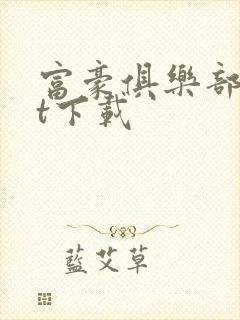 富豪俱樂部
t下載
藍艾草